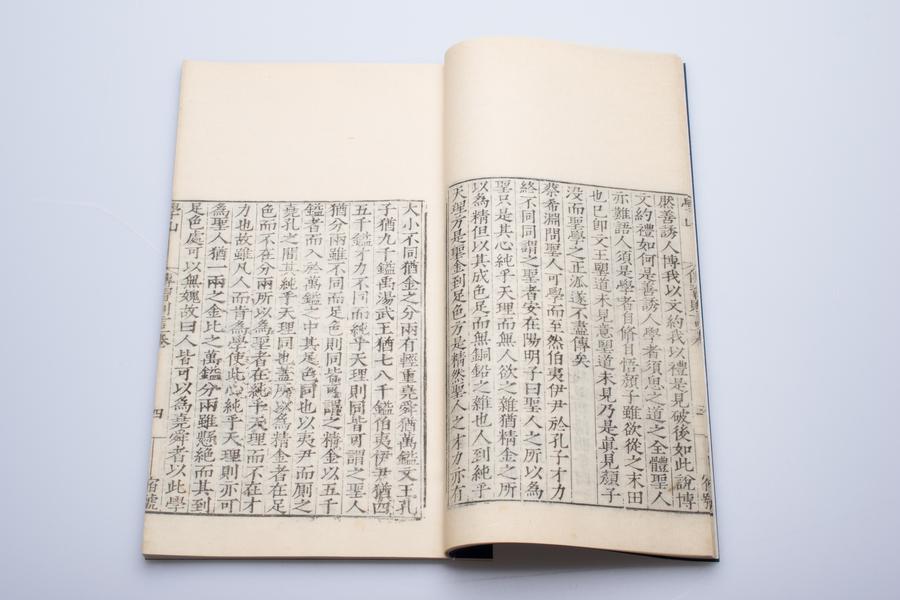 厭善誘人博我以文約我以禮是見破後如此說博
文約禮如何是善誘人學者須思之道之全體聖人
亦難語人須是學者自脩自悟顏子雖欲從之末由
也已卽文王望道未見意望道未見乃是眞見顏子
没而聖學之正派遂不盡傳矣
蔡希淵問聖人可學而至然伯夷伊尹於孔子才力
終不同同謂之聖者安在陽明子曰聖人之所以為
聖只是其心純乎天理而無人欲之雜猶精金之所
以為精但以其成色足而無銅鉛之雜也人到純乎
天理方是聖金到足色方是精然聖人之才力亦有
大小不同猶金之分兩有輕重堯舜猶萬鎰文王孔
子猶九千鎰禹湯武王猶七八千鎰伯夷伊尹猶四
五千鎰才力不同而純乎天理則同皆可謂之聖人
猶分兩雖不同而足色則同皆可謂之精金以五千
鎰者而入於萬鎰之中其足色同也以夷尹而厠之
堯孔之間其純乎天理同也蓋所以為精金者在足
色而不在分兩所以為聖者在純乎天理而不在才
力也故雖凡人而肯為學使此心純乎天理則亦可
為聖人猶一兩之金比之萬鎰分兩雖懸絶而其到
足色處可以無媿故曰人皆可以為堯舜者以此學
四